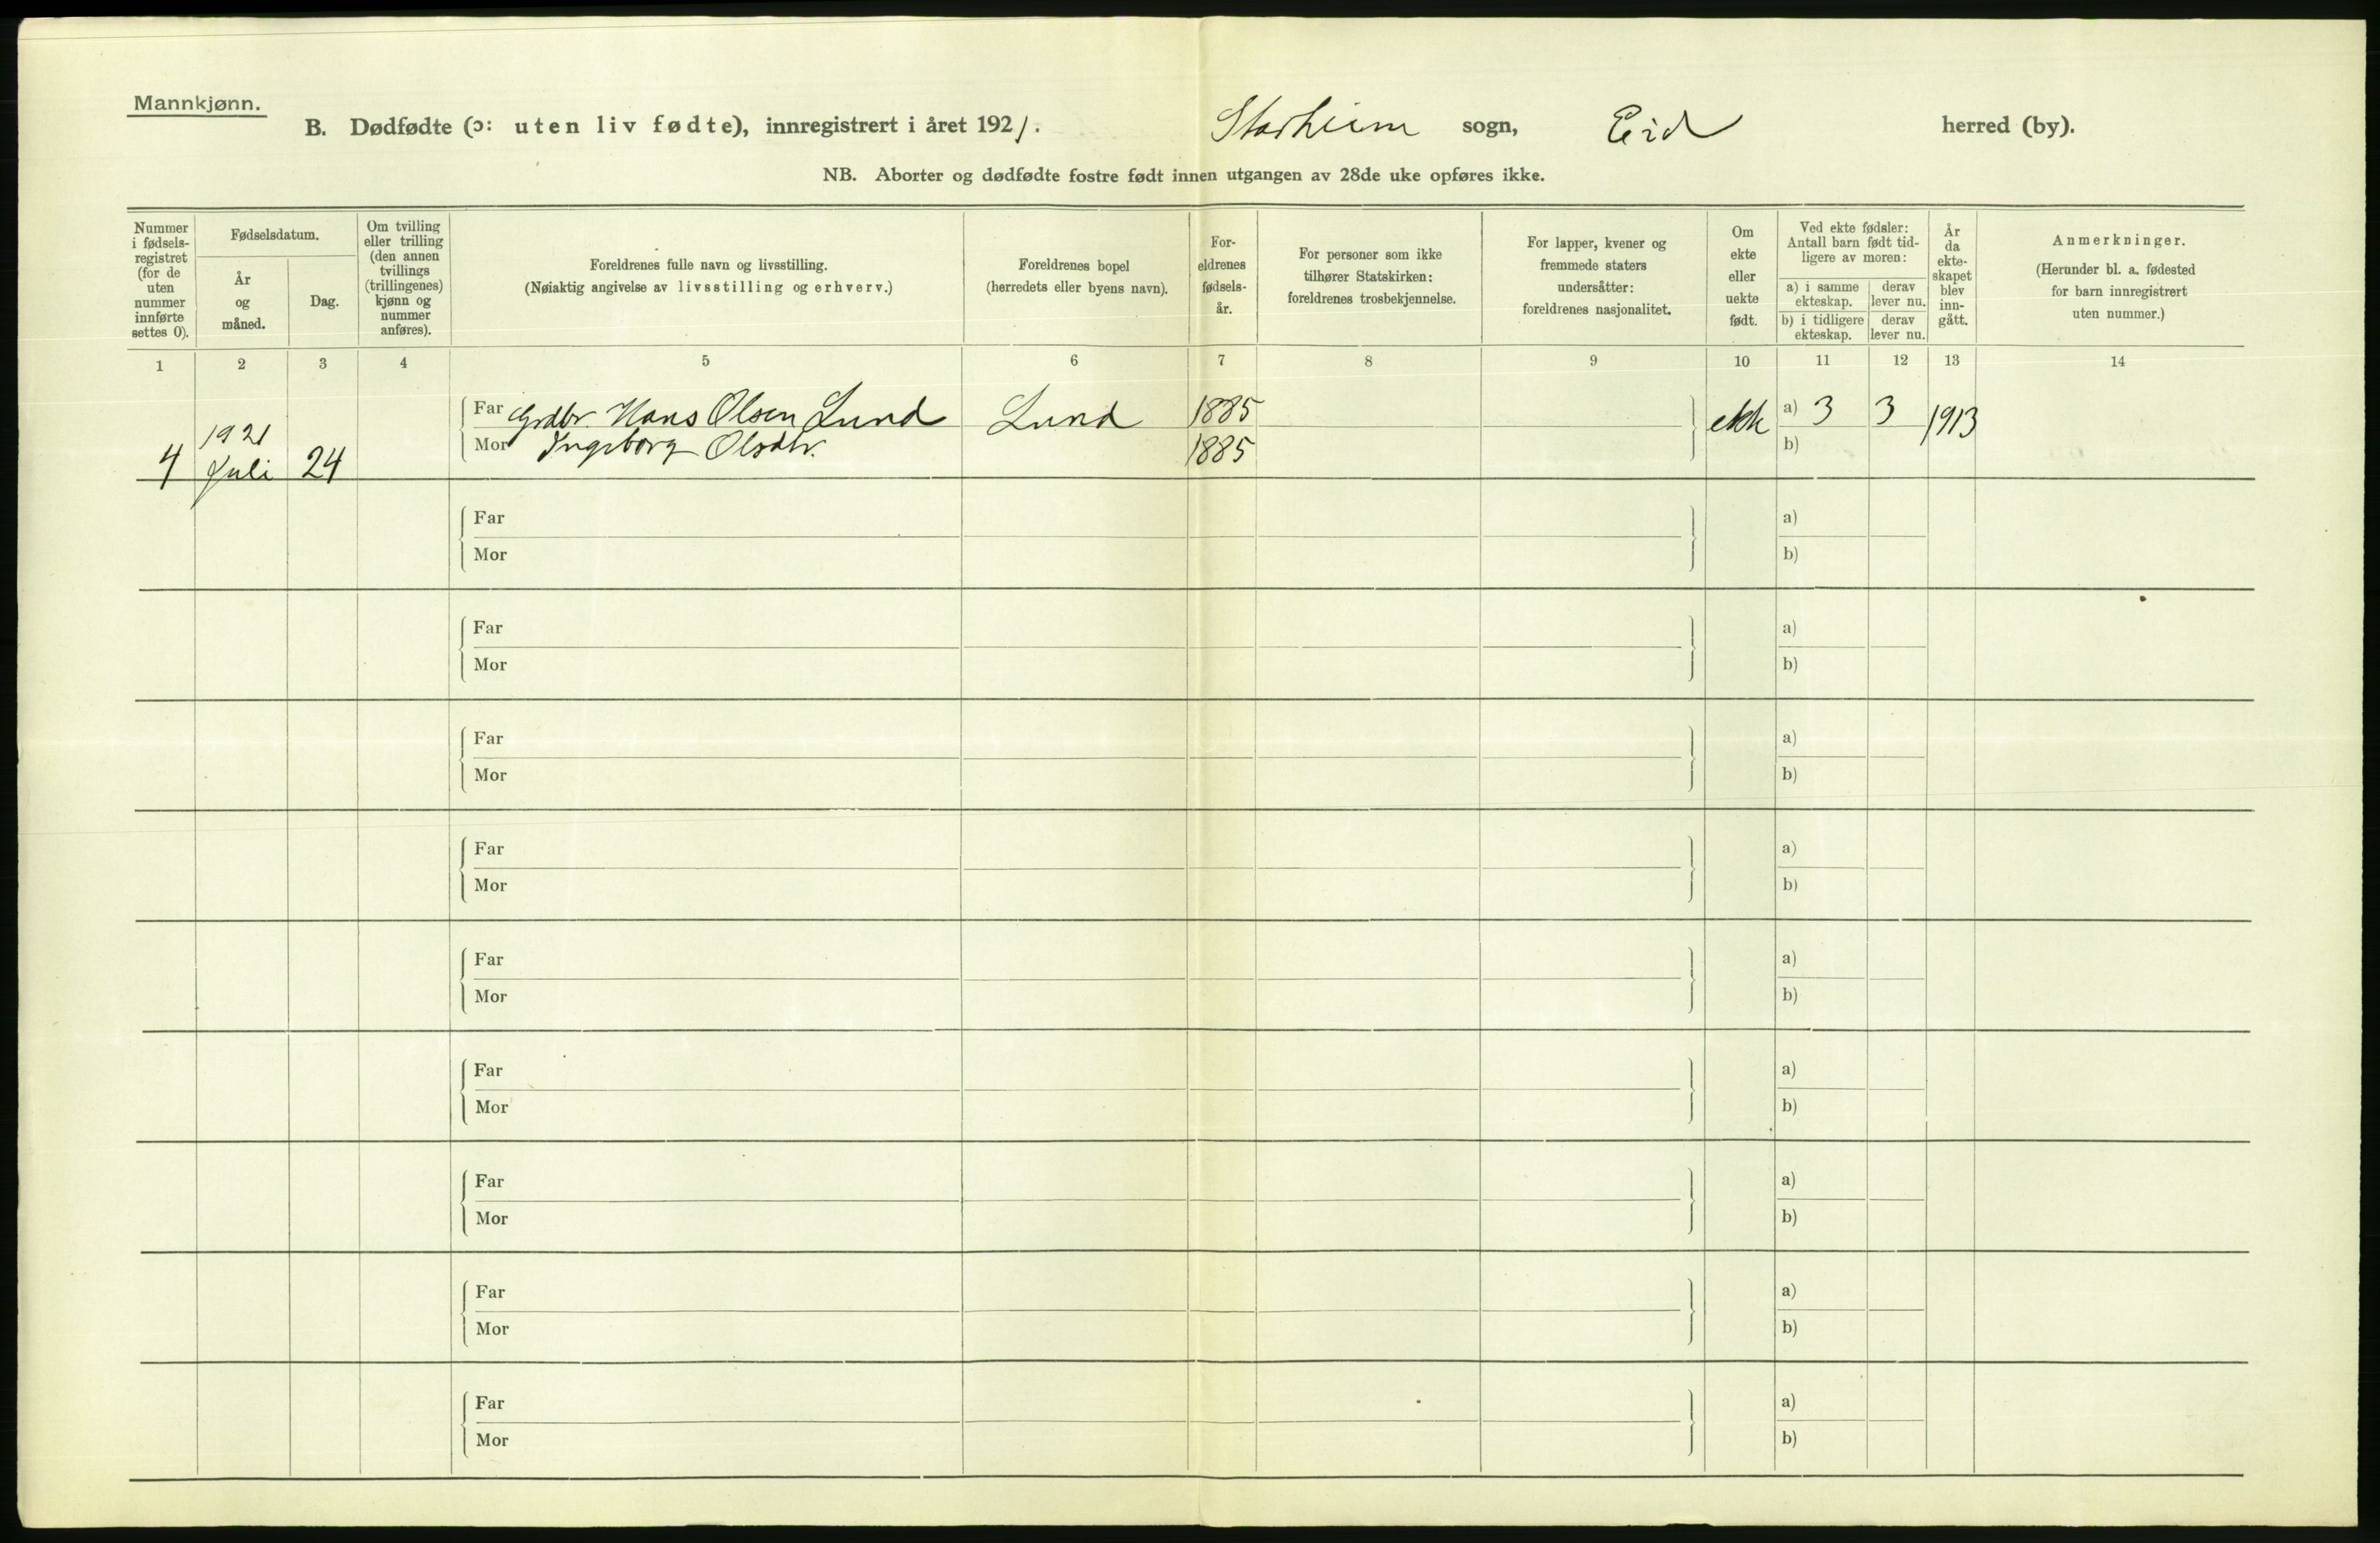 Mannkjønn.
B. Dødfødte (ɔ: uten liv fødte), innregistrert i året 1921. Starheim sogn, Eid herred (by).
NB. Aborter og dødfødte fostre født innen utgangen av 28de uke opføres ikke.
Nummer i fødsels-registret (for de uten nummer innførte settes 0).
Fødselsdatum.
År og måned.
Dag.
Om tvilling eller trilling (den annen tvillings (trillingenes) kjønn og nummer anføres).
Foreldrenes fulle navn og livsstilling.
(Nøiaktig angivelse av livsstilling og erhverv.)
Foreldrenes bopel
(herredets eller byens navn).
For-eldrenes fødsels-år.
For personer som ikke tilhører Statskirken: foreldrenes trosbekjennelse.
For lapper, kvener og fremmede staters undersåtter: foreldrenes nasjonalitet.
Om ekte eller uekte født.
Ved ekte fødsler: Antall barn født tid-ligere av moren:
a) i samme ekteskap.
derav lever nu.
b) i tidligere ekteskap.
derav lever nu.
År da ekte-skapet blev inn-gått.
Anmerkninger.
(Herunder bl. a. fødested for barn innregistrert uten nummer.)
1 2 3 4 5 6 7 8 9 10 11 12 13 14
Far Grdbr. Hans Olsen Lund Lund 1885 ekte a) 3 3 1913
1921
Mor Ingeborg Olsdtr. 1885 b)
4 Juli 24
Far a)
Mor b)
Far a)
Mor b)
Far a)
Mor b)
Far a)
Mor b)
Far a)
Mor b)
Far a)
Mor b)
Far a)
Mor b)
Far a)
Mor b)
Far a)
Mor b)